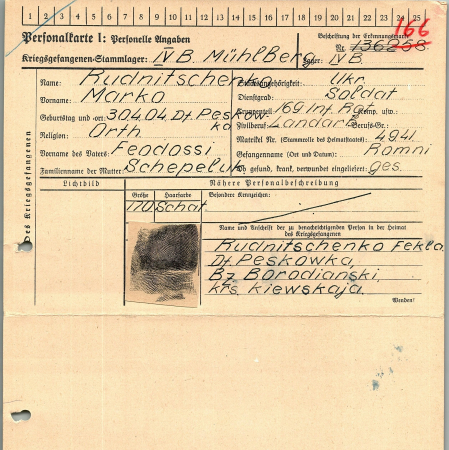 1 2 3 4 5 6 7 8 9 10 11 12 13 14 15 16 17 18 19 20 21 22 23 24 25
166
Personalkarte I: Personelle Angaben
Beschriftung der Erkennungsmarke
Nr. 136258
Kriegsgefangenen-Stammlager: IV B. Mühlberg
Lager: IV B.
des Kriegsgefangenen
Name: Rudnitschenko
Staatsangehörigkeit: Ukr.
Vorname: Marko
Dienstgrad: Soldat
Geburtstag und -ort: 30.4.04. Df. Peskowka
Truppenteil: 169 Inf. Rgt. Komp. usw.
Religion: Orth
Zivilberuf: Landarb. Berufs-Gr.
Vorname des Vaters: Feodossi
Matrikel Nr. (Stammrolle des Heimatstaates): 4941
Gefangennahme (Ort und Datum): Romni
Familienname der Mutter: Schepeljuk
Ob gesund, krank, verwundet eingeliefert: ges.
Lichtbild
Nähere Personalbeschreibung
Größe Haarfarbe Besondere Kennzeichen:
170 Schat.
Name und Anschrift der zu benachrichtigenden Person in der Heimat
des Kriegsgefangenen
Rudnitschenko Fekla
Df. Peskowka,
Bz. Borodianski,
krs. kiewskaja.
Wenden!